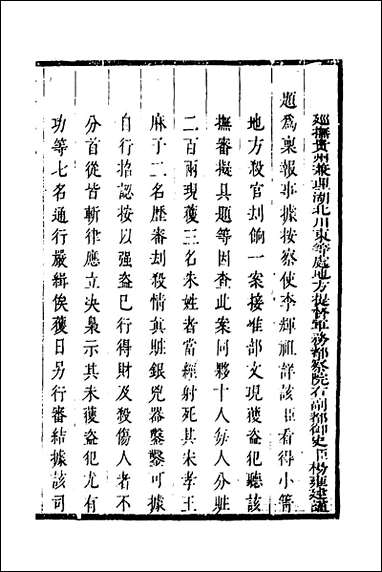 巡撫貴州兼理湖北川東等處地方提督軍務都察院右副都御史臣楊雍建謹
題爲稟報事據按察使李輝祖詳該臣看得小箐
地方殺官刦餉一案接准部文現獲盜犯聽該
撫審擬具題等因查此案同夥十人每人分賍
二百兩現獲三名朱姓者當經射死其未孝王
麻子二名歷審刦殺情眞賍銀兇器鑿鑿可據
自行招認按以強盜已行得財及殺傷人者不
分首從皆斬律應立决梟示其未獲盜犯尤有
功等七名通行嚴緝俟獲日另行審結據該司